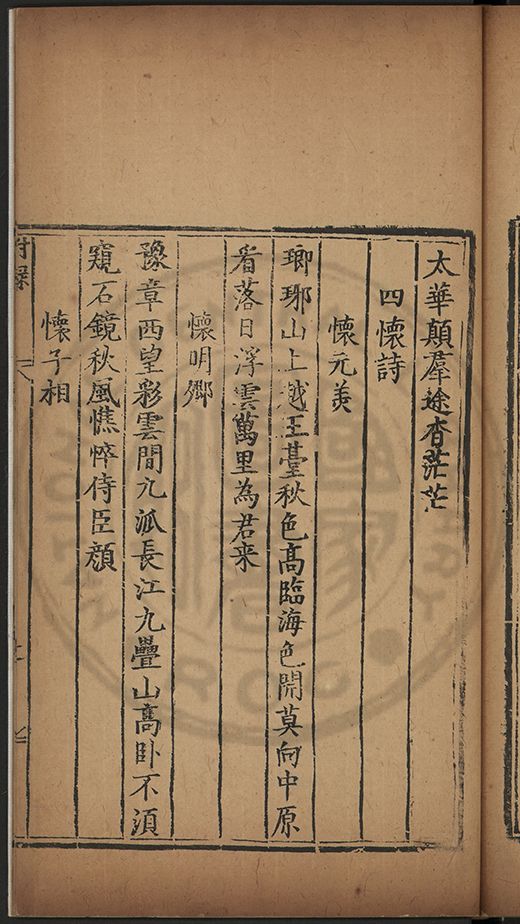 太華顛羣途杳茫茫
四懷詩
懷元美
瑯琊山上越王臺秋色高臨海色開莫向中原
看落日浮雲萬里為君来
懷明卿
豫章西望彩雲間九派長江九疊山高卧不須
窺石鏡秋風憔悴侍臣顔
懷子相
附錄